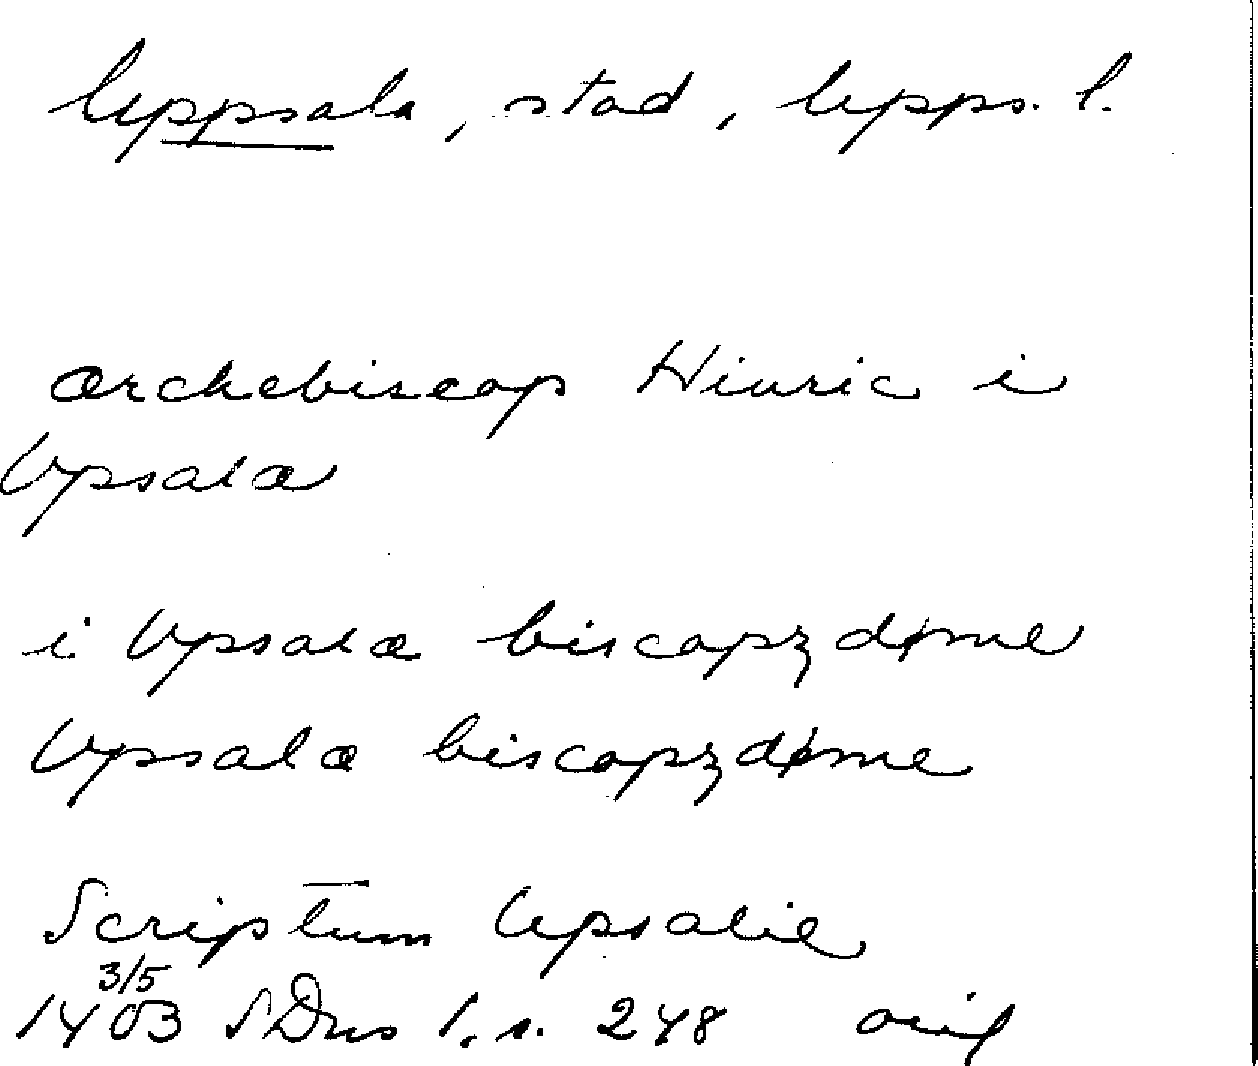 Uppsala, stad, Upps. l.
ærchebiscop Hinric i
Vpsala
i Vpsalæ biscopzdøme
Vpsalæ biscopzdøme
Scriptum Upsalie
3/5
1403 SDns 1, s. 248 orig